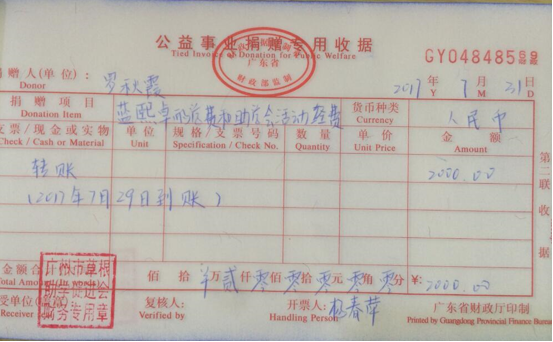 公益事业捐赠专用收据
Tied Invoice of Donation for Public Welfare
广东省
财政部监制
GY048485
捐赠人(单位): 罗秋霞 2017年 7月 31日
Donor Y M D
捐赠项目 货币种类 人民币
Donation Item Currency
支票/现金或实物 单位 规格/支票号码 数量 单价 金额
Check / Cash or Material Unit Specification / Check No. Quantity Unit Price Amount
转账 2000.00
(2017年7月29日到账)
金额合计 佰 拾 万贰仟零佰零拾零元零角零分 ¥: 2000.00
Total Amount
广州市草根
助学促进会
财务专用章
接受单位(盖章) 复核人: 开票人: 杨春萍 广东省财政厅印制
Receiver Verified by Handling Person Printed by Guangdong Provincial Finance Bureau
第二联 收据